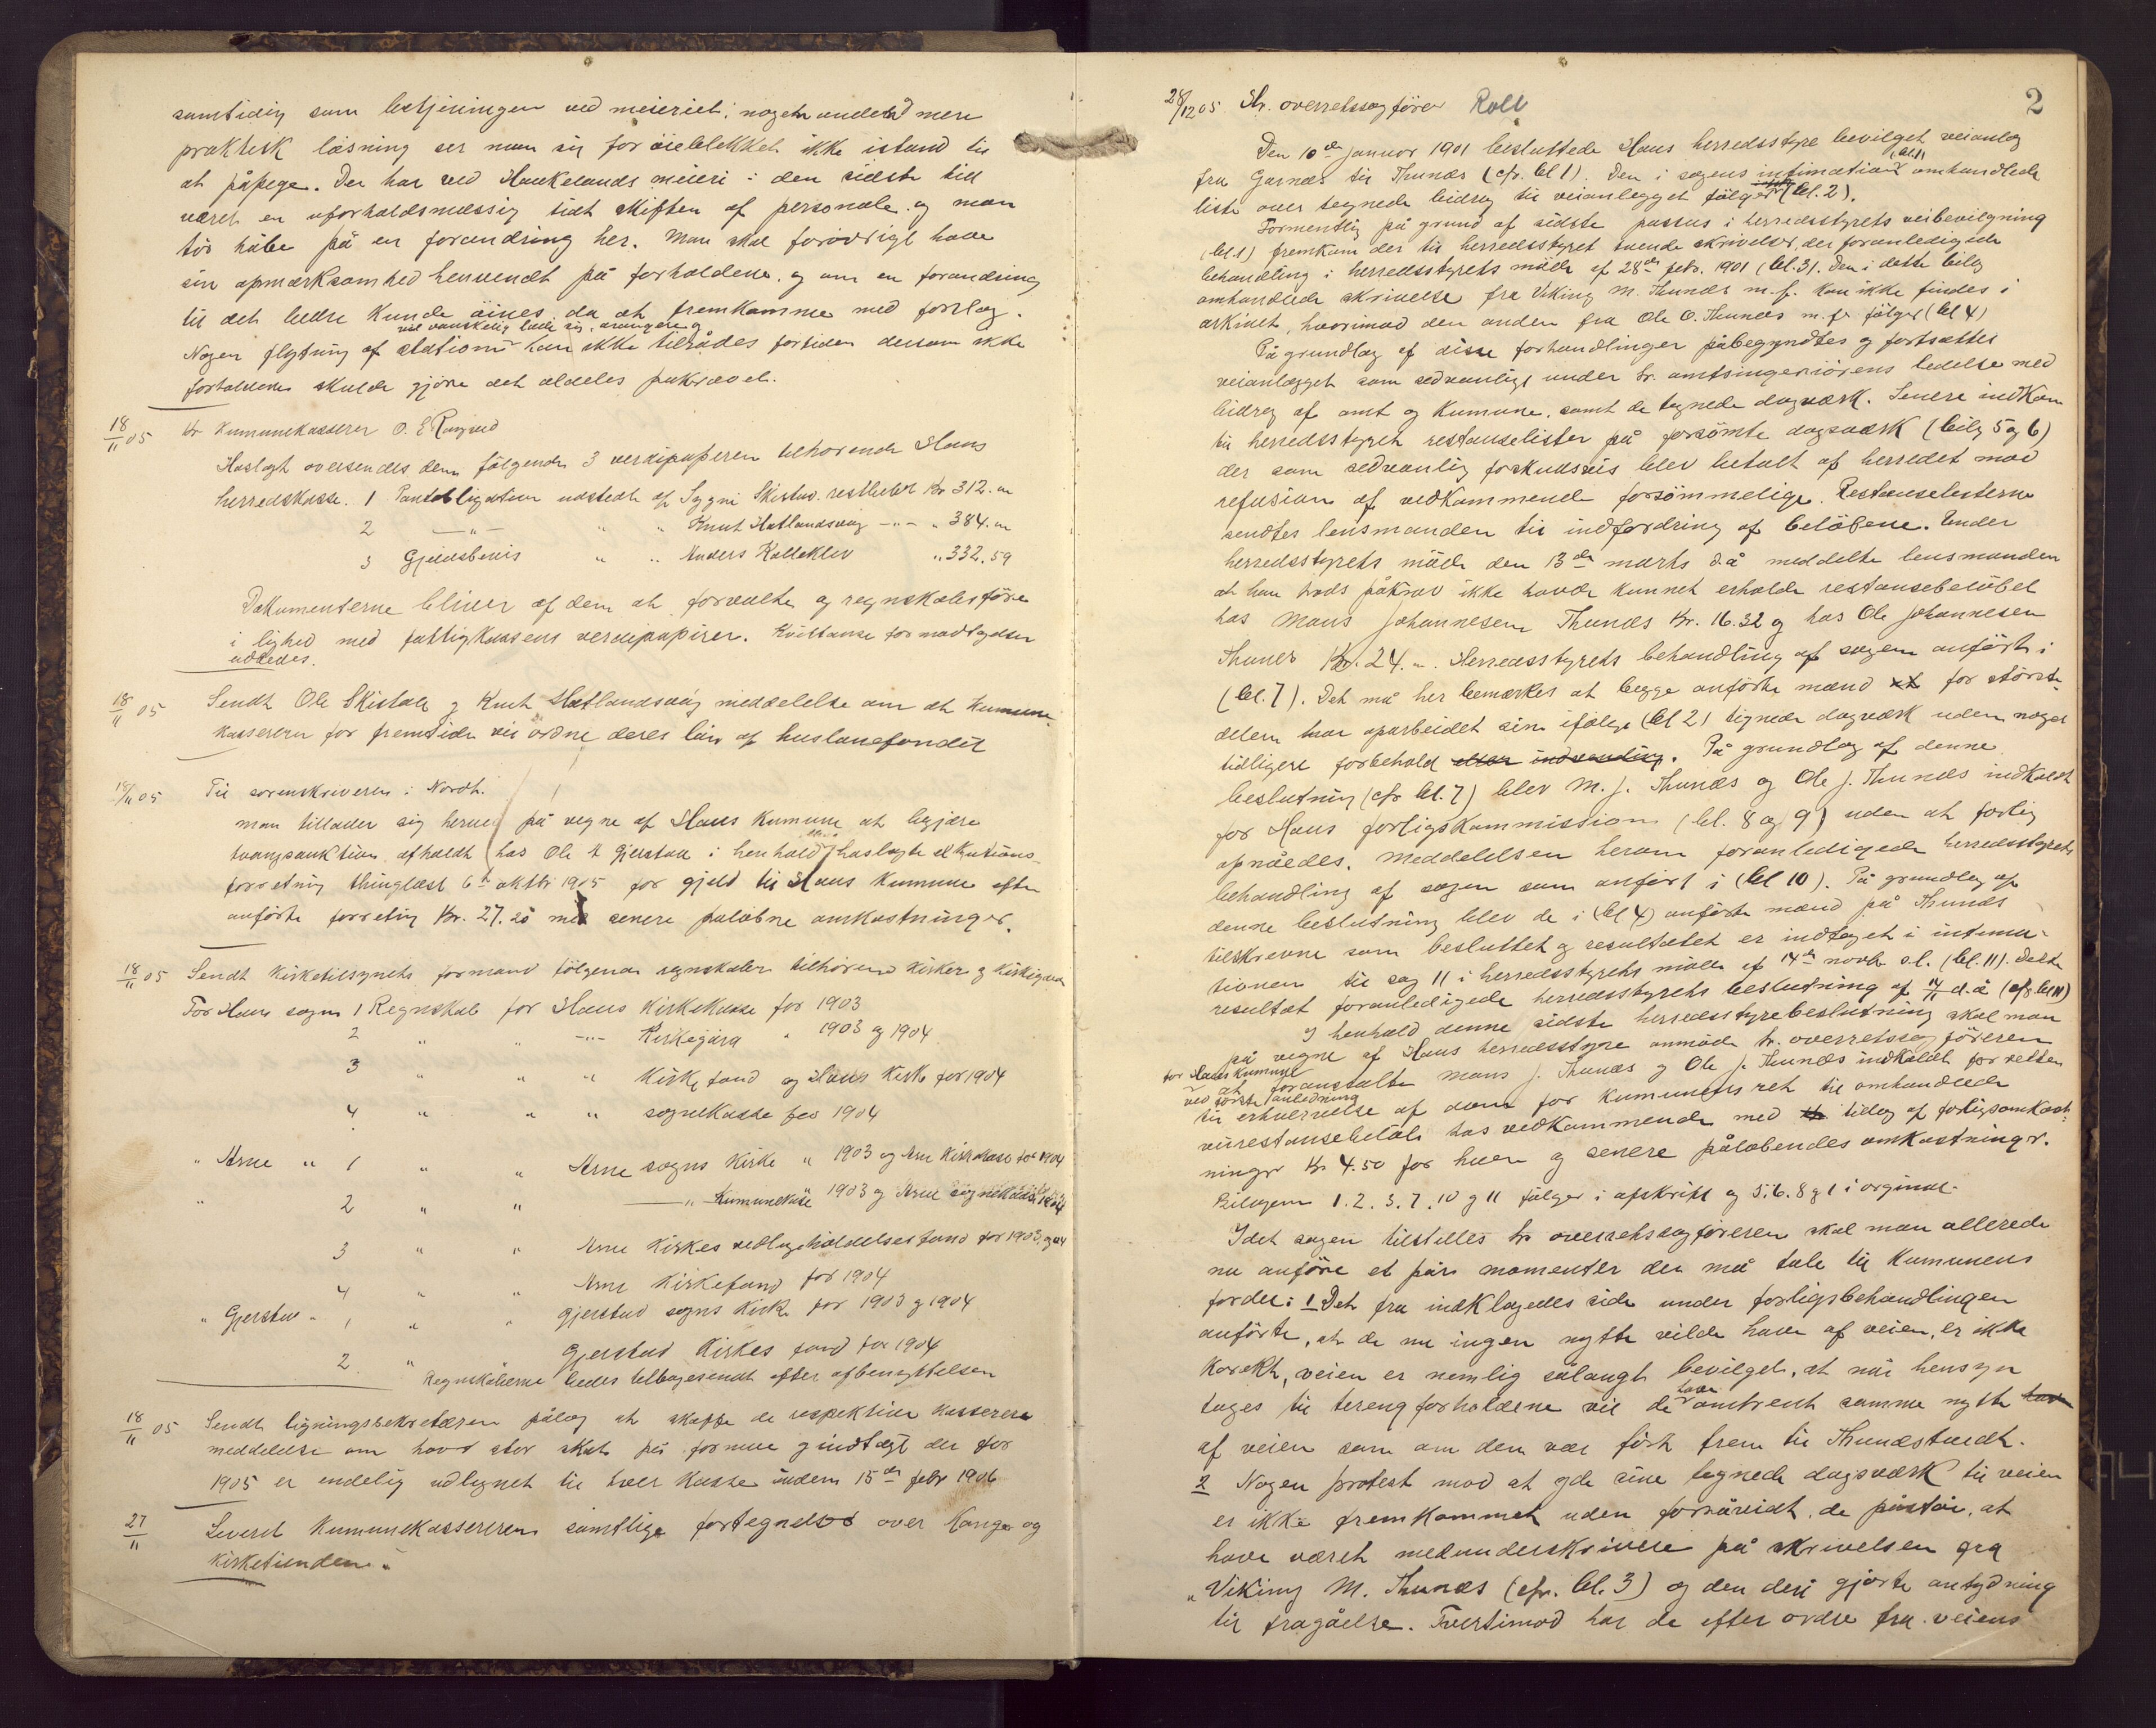 samtidig som bestyringen ved meieriet; nogen anden mere
praktisk løsning ser man sig for øieblikket ikke istand til
at påpege. Der har ved Haukelands meieri i den sidste tid
været en uforholdsmæssig tidt skiften af personale og man
tør håbe på en forandring her. Man skal forøvrigt have
sin opmærksomhed henvendt på forholdene og om en forandring
til det bedre kunde øines da at fremkomme med forslag.
vil vanskelig lade sig arangere og
Nogen flytning af station kan ikke tilrådes fortiden dersom ikke
forholdene skulde gjøre det aldeles påkrævet.
18/11 05 Hr kumunekasserer O. E
Hoslagt oversendes dem følgende 3 verdipapirer tilhørende Haus
herredskasse. 1 Pantobligation udstedt af Sygni Skistad restbeløb Kr 312.00
2 —"— " " Knut Hatlandsvåg —"— " 384.00
3 Gjeldsbevis " " Anders Kalleklev " 332.59
Dokumenterne bliver af dem at forvalte og regnskabsføre
i lighed med fattigkassens verdipapirer. Kvittanse for modtagelsen
udbedes.
18/11 05 Sendt Ole Skistad og Knut Hatlandsvåg meddelelse om at kumune
kassereren for fremtiden vil ordne deres lån af huslånefondet
18/11 05 Til sorenskriveren i Nordh.
man tillader sig herved på vegne af Haus kumune at begjære
tvangsauktion afholdt hos Ole Gjerstad i henhold til hoslagte exekutions-
forretning thinglæst 6te oktbr 1905 for gjeld til Haus kumune efter
anførte forretnig Kr. 27.20 med senere påløbne omkostninger.
18/11 05 Sendt kirketilsynets formand følgende regnskaber tilhørende kirker og kirkegårde
For Haus sogn 1 Regnskab for Haus Kirkekasse for 1903
2 " " —"— Kirkegård " 1903 og 1904
3 " " " Kirkefond og Haus Kirke for 1904
4 " " " sognekasse for 1904
" Arne " 1 " " Arne sogns kirke " 1903 og Arne kirkekasse for 1904
" 2 " " —"— Kumunekasse 1903 og Arne sognekasse 1904
3 " " Arne Kirkes vedligeholdelsesfond for 1903 og 04
4 " " Arne Kirkefond for 1904
" Gjerstad " 1 " " Gjerstad sogns kirke for 1903 og 1904
2 " Gjerstad Kirkes fond for 1904
Regnskaberne bedes tilbagesendt efter afbenyttelsen
18/11 05 Sendt ligningssekretæren pålæg at skaffe de respektive kasserere
meddelelse om hvor stor skat på formue og indtægt der for
1905 er endelig udlignet til hver kasse inden 15de febr 1906
27/11 Leveret kumunekassereren samtlige fortegnelser over Konge og
kirketienden.
2
28/12 05 Hr. overretssagfører Roll
Den 10de januar 1901 besluttede Haus herredsstyre bevilget veianlæg
fra Garnæs til Thunæs (cfr. bl 1). Den i sagens intimation (bl.1) omhandlede
liste over tegnede bidrag til veianlegget følger (bl. 2).
Formentlig på grund af sidste passus i herredsstyrets veibevilgning
(bl.1) fremkom der til herredsstyret tvende skrivelser, der foranledigede
behandling i herredsstyrets møde af 28de febr. 1901 (bl. 3). Den i dette bilag
omhandlede skrivelse fra Viking M. Thunæs m. fl. kan ikke findes i
arkivet, hvorimod den anden fra Ole O. Thunæs m. fl følger (bl 4)
På grundlag af disse forhandlinger påbegyndtes og fortsattes
veianlægget som sedvanligt under hr. amtsingeniørens ledelse med
bidrag af amt og kumune, samt de tegnede dagværk. Senere indkom
til herredsstyret restanselister på forsømte dagsværk (bilag 5 og 6)
der som sedvanlig forskudsvis blev betalt af herredet mod
refusion af vedkommende forsømmelige. Restanselisterne
sendtes lensmanden til indfordring af beløbene. Under
herredsstyrets møde den 13de marts d å meddelte lensmanden
at han trods påkrav ikke havde kunnet erholde restansebeløbet
hos Mons Johannesen Thunæs Kr. 16.32 og hos Ole Johannesen
Thunæs Kr. 24.00. Herredsstyrets behandling af sagen anført i
(bl. 7). Det må her bemærkes at begge anførte mænd for største-
delen har oparbeidet sine ifølge (bl 2) tegnede dagværk uden noget
tidligere forbehold eller indvending. På grundlag af denne
beslutning (cfr bl. 7) blev M. J. Thunæs og Ole J. Thunæs indkaldt
for Haus forligskommission (bl. 8 og 9) uden at forlig
opnåedes. Meddelelsen herom foranledigede herredsstyrets
behandling af sagen som anført i (bl 10). På grundlag af
denne beslutning blev de i (bl 4) anførte mænd på Thunæs
tilskrevne som besluttet og resultatet er indtaget i intima-
tionen til sag 11 i herredsstyrets møde af 14de novb. s.l. (bl. 11). Dette
resultat foranledigede herredsstyrets beslutning af 14/11 d.å (cfr. bl 11)
I henhold denne sidste herredsstyrebeslutning skal man
på vegne af Haus herredsstyre anmode hr. overretssagføreren
for Haus kumune
at foranstalte Mons J. Thunæs og Ole J. Thunæs indkaldt for retten
ved første anledning
til erhvervelse af dom for kumunens ret til omhandlede
veirestansebeløb hos vedkommende med tillæg af forligsomkost-
ninger Kr 4.50 for hver og senere påløbendes omkostninger.
Bilagene 1. 2. 3. 7. 10 og 11 følger i afskrift og 5. 6. 8 g 1 i orginal.
Idet sagen tilstilles hr overretssagføreren skal man allerede
nu anføre et par momenter der må tale til kumunens
fordel: 1 Det fra indklagedes side under forligsbehandlingen
anførte, at de nu ingen nytte vilde have af veien, er ikke
korekt, veien er nemlig sålangt bevilget, at når hensyn
tages til terengforholdene vil de have omtrent samme nytte
af veien som om den var ført frem til Thunæstrædt.
2 Nogen protest mod at yde sine tegnede dagsværk til veien
er ikke fremkommet uden forsåvidt, de påstår, at
have været medunderskrivere på skrivelsen fra
"Viking M. Thunæs (cfr. bl. 3) og den deri gjorte antydning
til fragåelse. Tvertimod har de efter ordre fra veiens